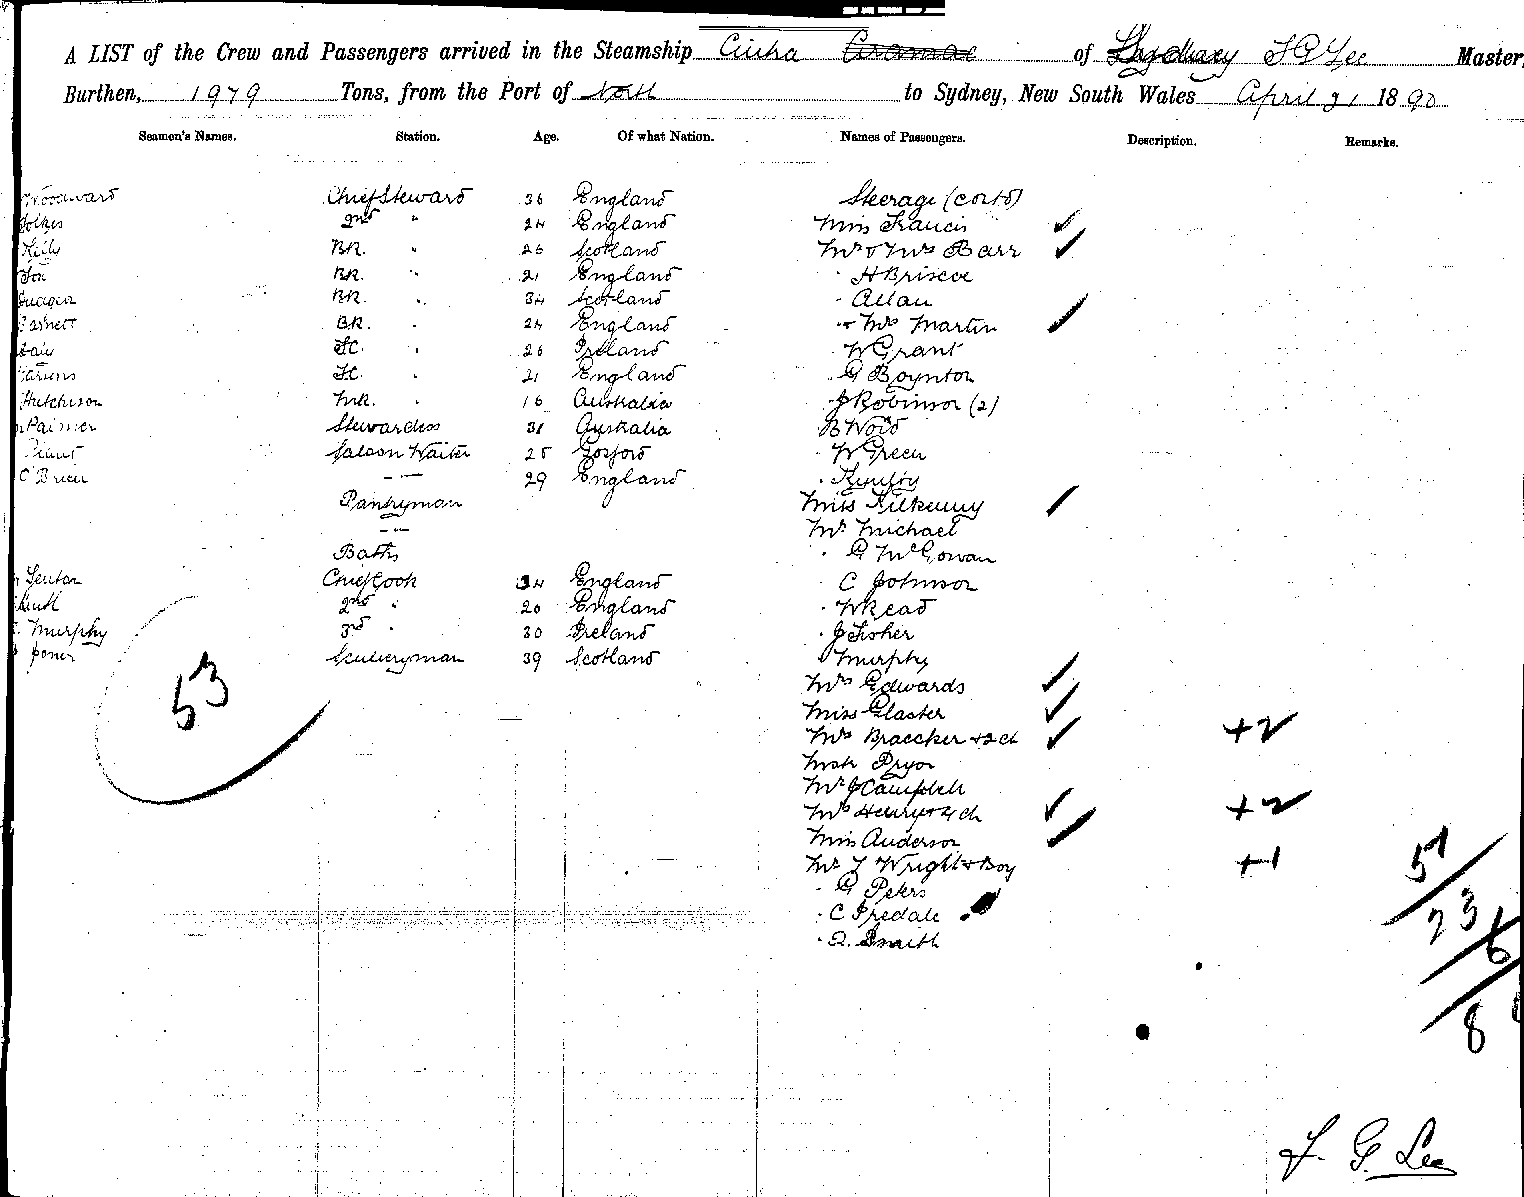 A LIST of the Crew and Passengers arrived in the Steamship Cintra Aramac of Sydney F G Lee Master,
Burthen, 1979 Tons, from the Port of North to Sydney, New South Wales April 21 1890
Seamen's Names. Station. Age. Of what Nation. Names of Passengers. Description. Remarks.
Woodward Chief Steward 36 England Steerage (contd)
2nd " 24 England Miss Francis ✓
BR. " 26 Scotland Mr & Mrs Barr ✓
Fox BR. " 21 England " H Briscoe
BR. " 34 Scotland " Allan
Barnett BR. " 24 England " Mrs Martin ✓
FC. " 26 Ireland W Grant
FC. " 21 England G Boynton
Hutchison MR. " 16 Australia J Robinson (2)
Palmer Stewardess 31 Australia B Wood
Saloon Waiter 25 Gosford W Green
O'Brien — " — 29 England
Pantryman Miss Kilkenny ✓
— " — Mr Michael
Baths " G McGowan
Fenton Chief Cook 34 England C Johnson
2nd " 20 England " W Read
Murphy 3rd " 30 Ireland " J Fisher
Jones Sculleryman 39 Scotland Murphy
Mrs Edwards ✓
53 Miss Glaster ✓
Mrs Braecker + 2 ch ✓ +2
Pryor
Mr J Campbell
Mrs Henry + 2 ch ✓ +2
Miss Anderson ✓
Mr T Wright & Boy +1
" G Peters
" C Iredale
" Q. Smith
51
23
6
8
F. G. Lee